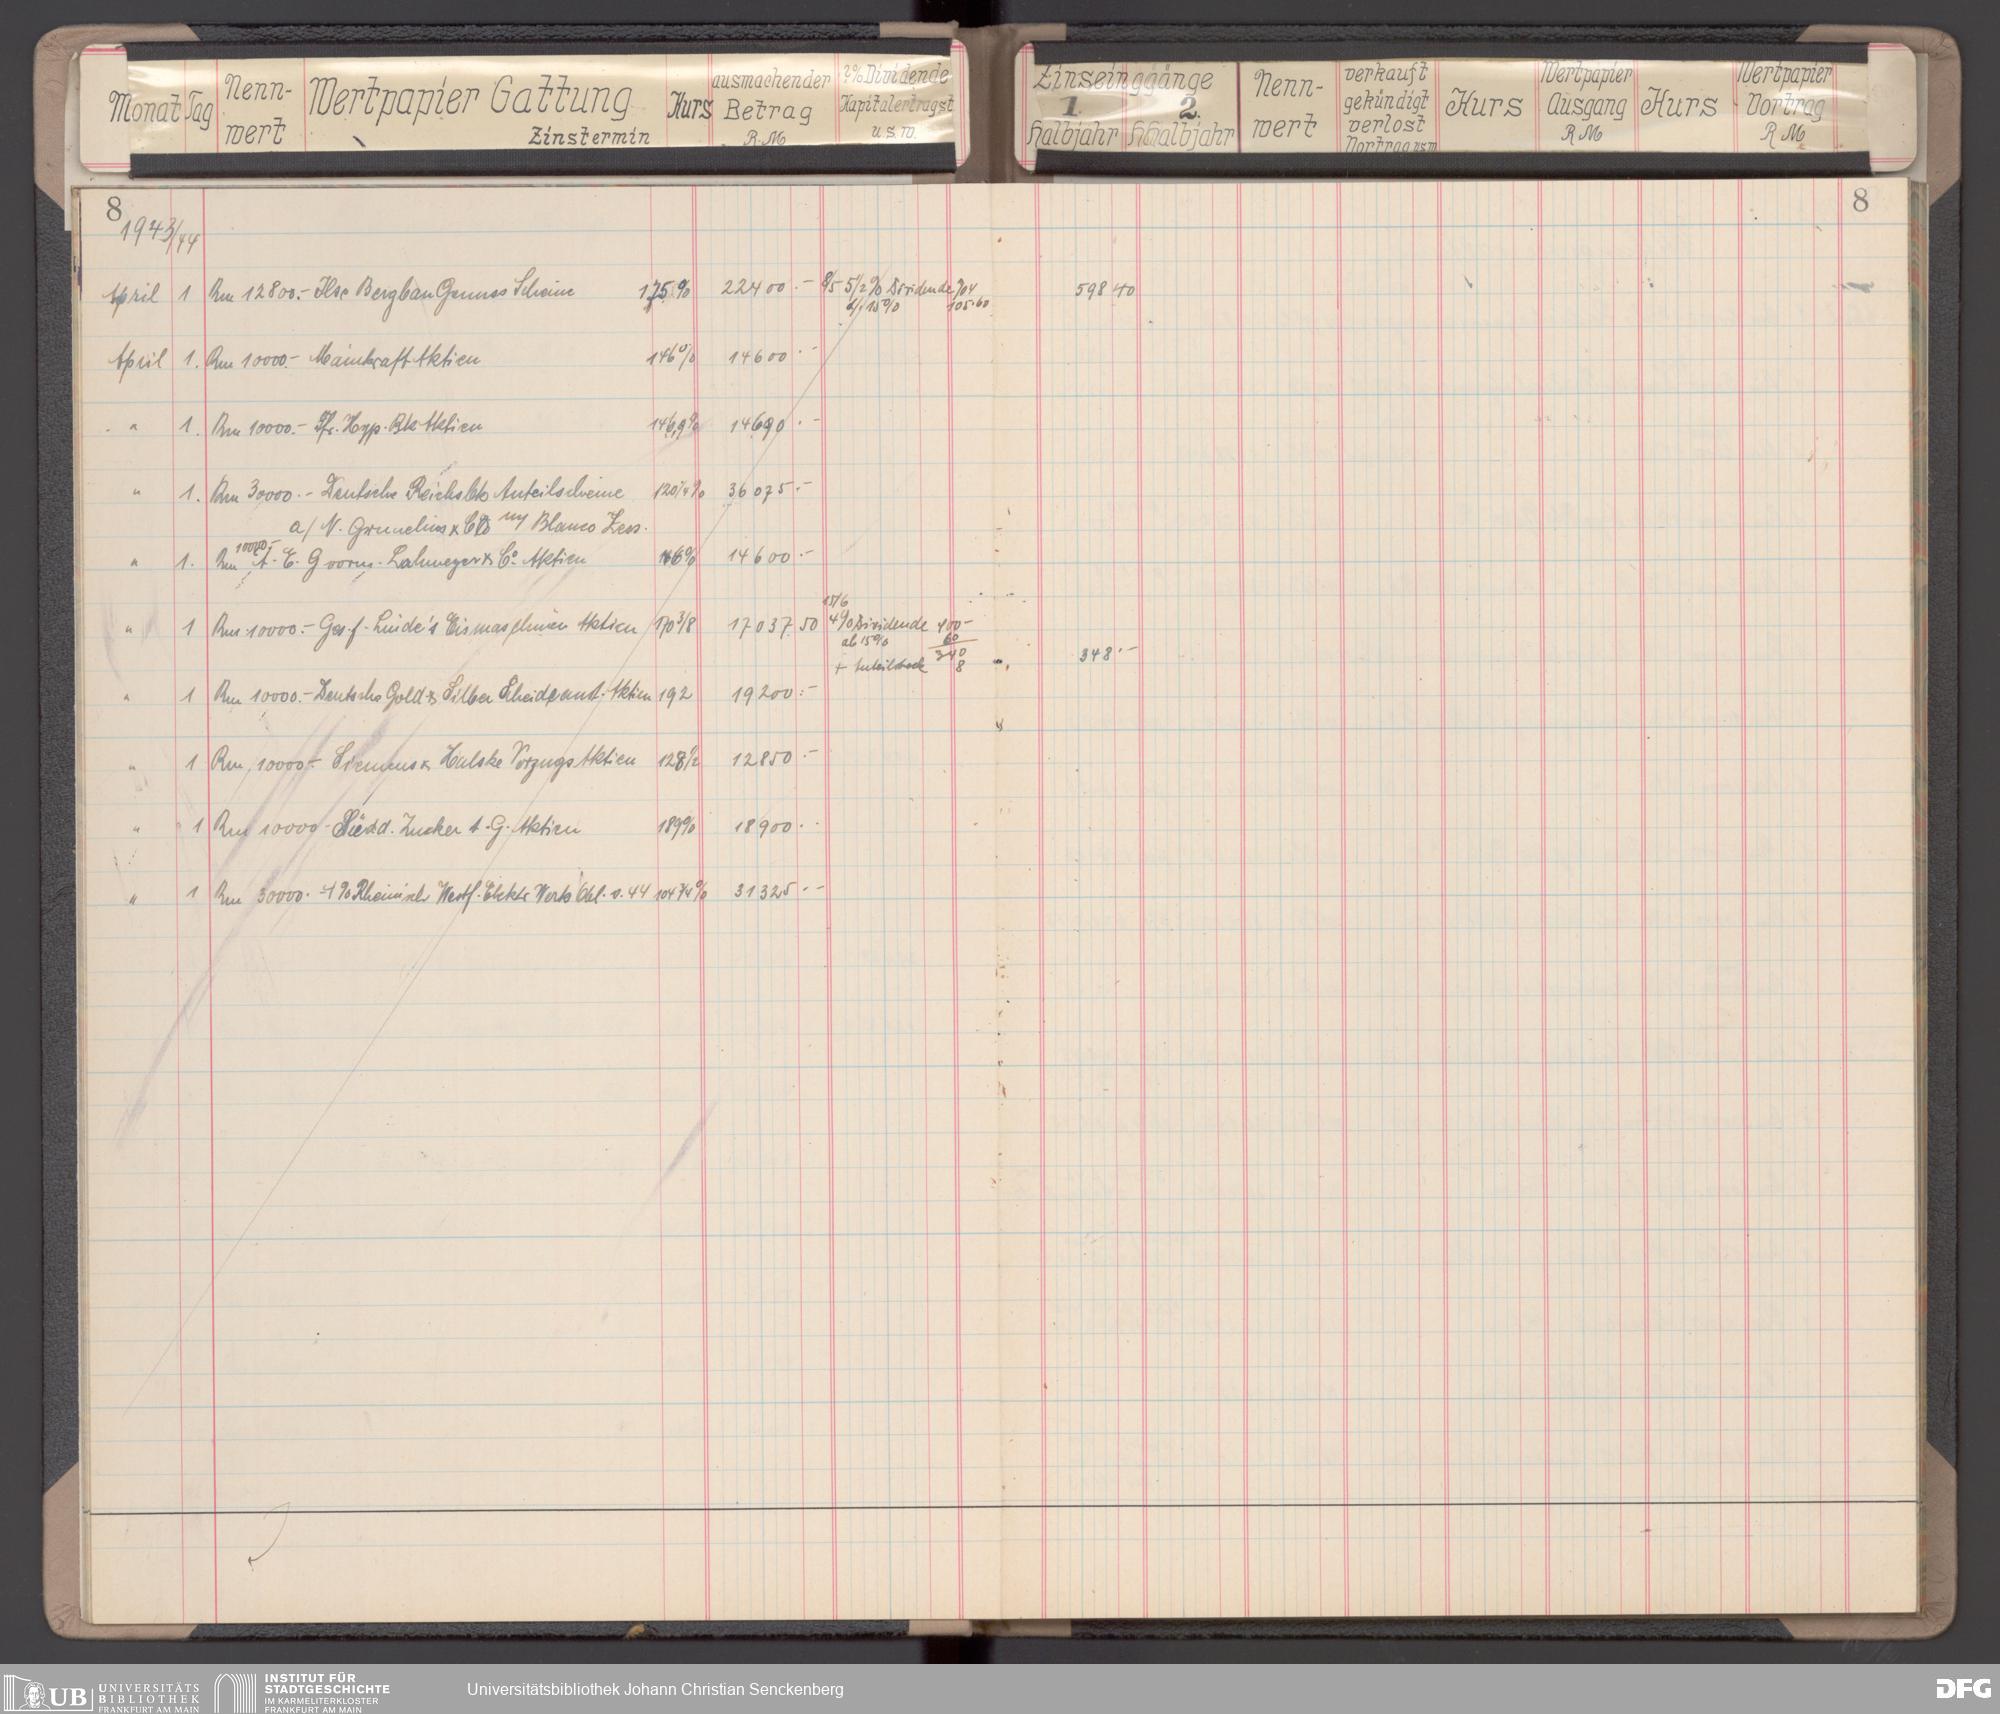 Monat Tag Nenn-wert Wertpapier Gattung Zinstermin Kurs ausmachender Betrag R.M ?% Dividende Kapitalertragst u.s.w.
Zinseinggänge 1. Halbjahr 2. Halbjahr Nenn-wert verkauft gekündigt verlost Vortrag usw Kurs Wertpapier Ausgang R M Kurs Wertpapier Vortrag R M
8 8
1943/44
April 1 Rm 12800.- Ilse Bergbau Genuss Scheine 175% 22400.- 8/5 5 1/2% Dividende 704 598 40
15% 105.60
April 1. Rm 10000.- Mainkraft Aktien 146% 14600.-
" 1. Rm 10000.- Fr. Hyp. Bk Aktien 146,9% 14690.-
" 1. Rm 30000.- Deutsche Reichsbk Anteilscheine 120 1/4% 36075.-
a/ N. Grunelius & Co m/ Blanco Zess.
" 1. Rm 10000.- A. E. G vorm. Lahmeyer & Co. Aktien 146% 14600.-
15/6
" 1 Rm 10000.- Ges. f. Linde's Eismaschinen Aktien 170 3/8 17037 50 4% Dividende 400-
ab 15% 60
340
+ Anteilstock 8 348.-
" 1 Rm 10000.- Deutsche Gold & Silber Scheideanst. Aktien 192 19200.-
" 1 Rm 10000.- Siemens & Halske Vorzugs Aktien 128 1/2 12850.-
" 1 Rm 10000.- Südd. Zucker A.G. Aktien 189% 18900.-
" 1 Rm 30000.- 4% Rheinisch Westf. Elektr Werk Obl. v. 44 104 3/4% 31325.-
UB UNIVERSITÄTS
BIBLIOTHEK
FRANKFURT AM MAIN
INSTITUT FÜR
STADTGESCHICHTE
IM KARMELITERKLOSTER
FRANKFURT AM MAIN
Universitätsbibliothek Johann Christian Senckenberg
DFG